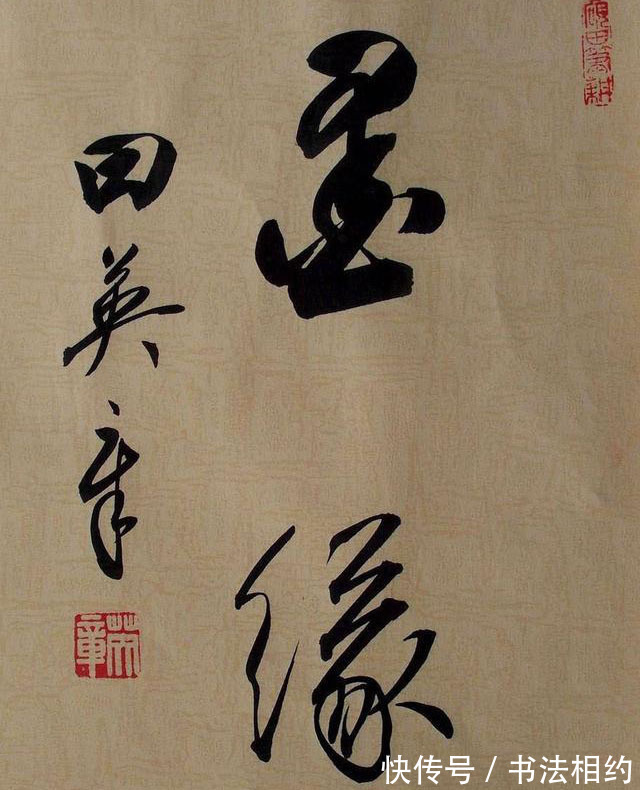 墨缘
田英章
快传号 / 书法相约